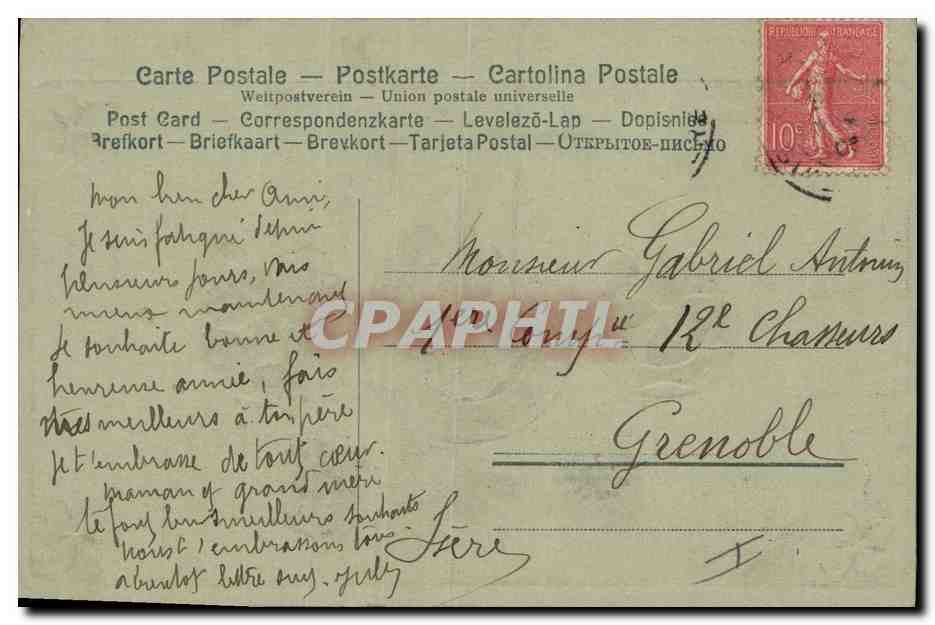 Carte Postale — Postkarte — Cartolina Postale
Weltpostverein — Union postale universelle
Post Card — Correspondenzkarte — Levelező-Lap — Dopisnice
Brefkort — Briefkaart — Brevkort — Tarjeta Postal — Открытое-письмо
REPUBLIQUE FRANÇAISE
10c
mon bien cher Ami,
Je suis fatigué depuis
plusieurs jours, vais
mieux maintenant
te souhaite bonne et
heureuse année, fais
mes meilleurs à ton père
je t'embrasse de tout cœur.
maman et grand mère
te font leurs meilleurs souhaits
nous t'embrassons tous
a bientot lettre
Monsieur Gabriel Antonin
1ère Compie 12e Chasseurs
Grenoble
Isère
CPAPHIL